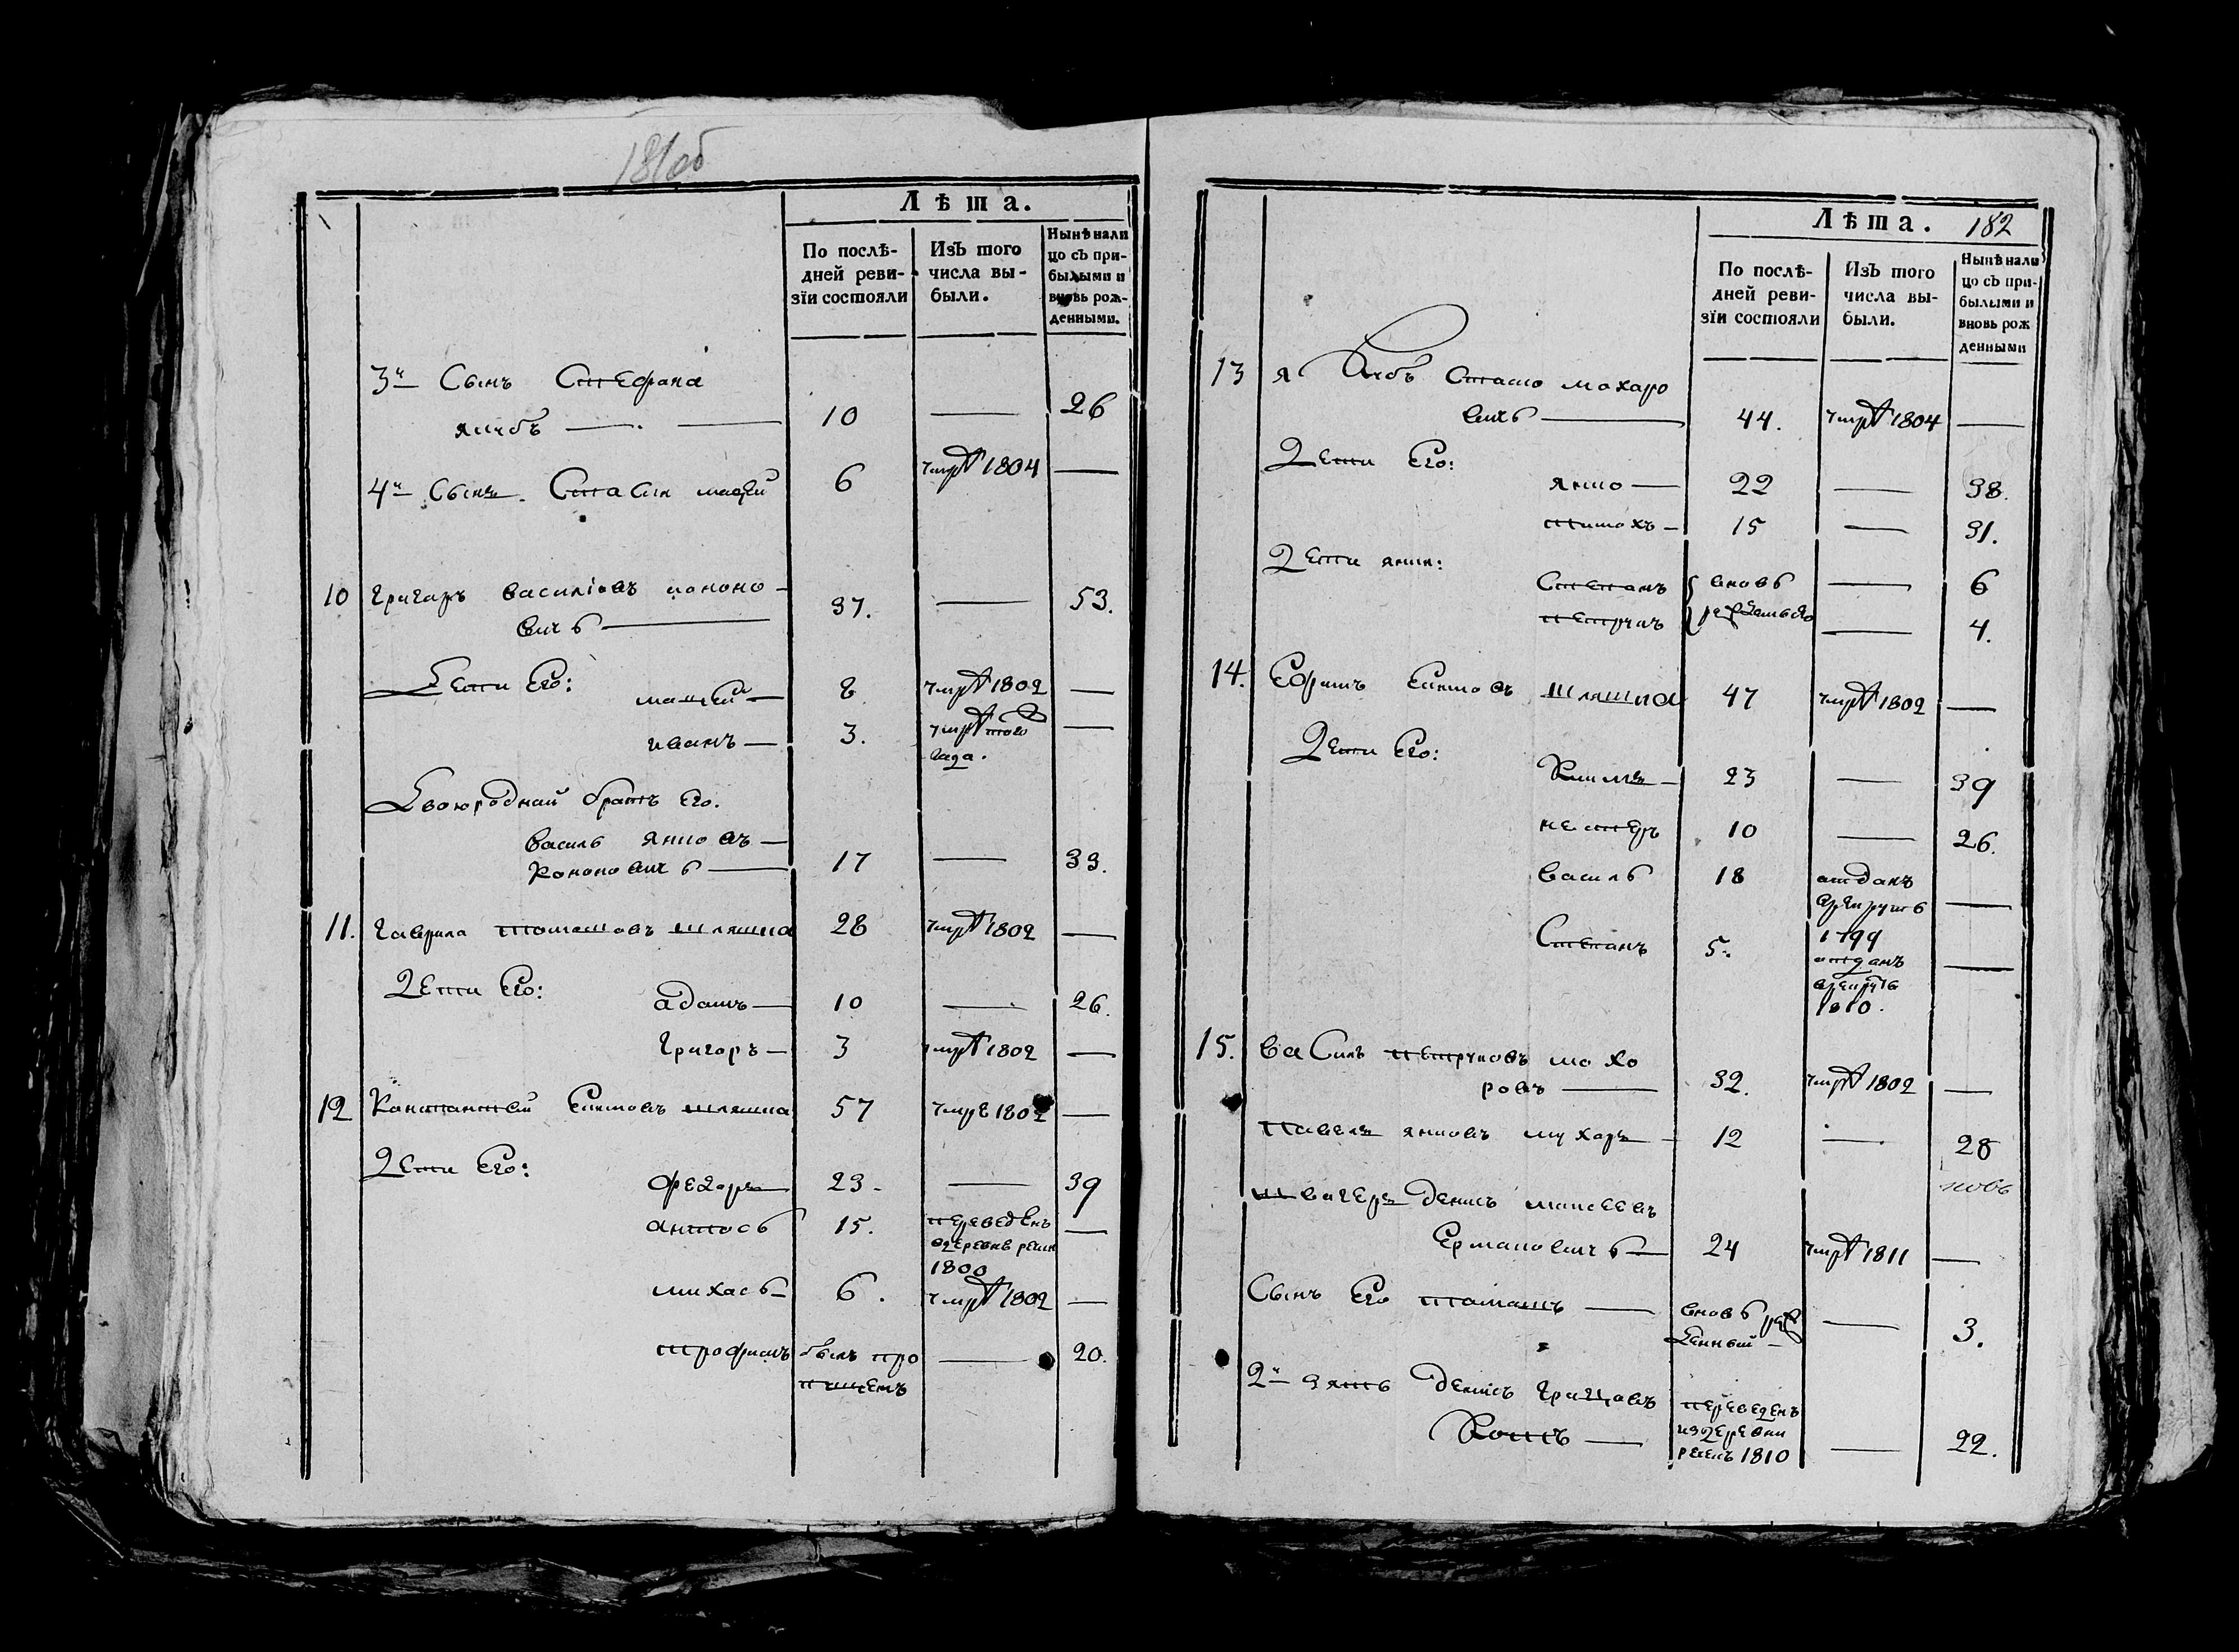 181об
Лѣта.
По послѣ-
дней реви-
зїи состояли
Изъ того
числа вы-
были.
Нынѣ нали
цо съ при-
былыми и
вновь рож-
денными.
3й Сынъ Стефана
якубъ — 10 — 26
4й Сынъ Стася мацей 6 умре 1804 —
10 Григоръ василіовъ конono-
вичъ — 37. — 53.
Дети Его:
мацей — 8 умре 1802 —
иванъ — 3. умре того —
года.
Двоюродный братъ его.
василь янковъ —
кононовичь — 17 — 33.
11. Гаврила томашовъ шляшка 28 умре 1802 —
Дети Его:
адамъ — 10 — 26.
Григоръ — 3 умре 1802 —
12 Константый Екимовъ шляшка 57 умре 1802 —
Дети Его:
федоръ 23. — 39
антось 15. переведенъ —
в деревне
1800
михась 6. умре 1802 —
трофимъ былъ про — 20.
пищенъ
Лѣта. 182
По послѣ-
дней реви-
зїи состояли
Изъ того
числа вы-
были.
Нынѣ нали
цо съ при-
былыми и
вновь рож
денными
13 якубъ махаро
вичь — 44. умре 1804 —
Дети Его:
янко — 22 — 38.
— 15 — 31.
Дети янки:
Степанъ вновь — 6
петрукъ — 4.
14. Ефимъ Екимовъ шляшка 47 умре 1802 —
Дети Его:
Климъ — 23 — 39
нестеръ 10 — 26.
василь 18 отданъ
врекруты —
1799
Степанъ 5. отданъ —
врекруты
1810.
15. василь петруковъ мохо
ровъ — 32. умре 1802 —
павелъ янковъ мухоръ — 12 — 28
швагеръ денисъ
Ермановичь — 24 умре 1811 —
Сынъ Его томашъ — вновь рож — 3.
денный —
2й зять денисъ грицовъ переведенъ
из деревни
1810 — 22.